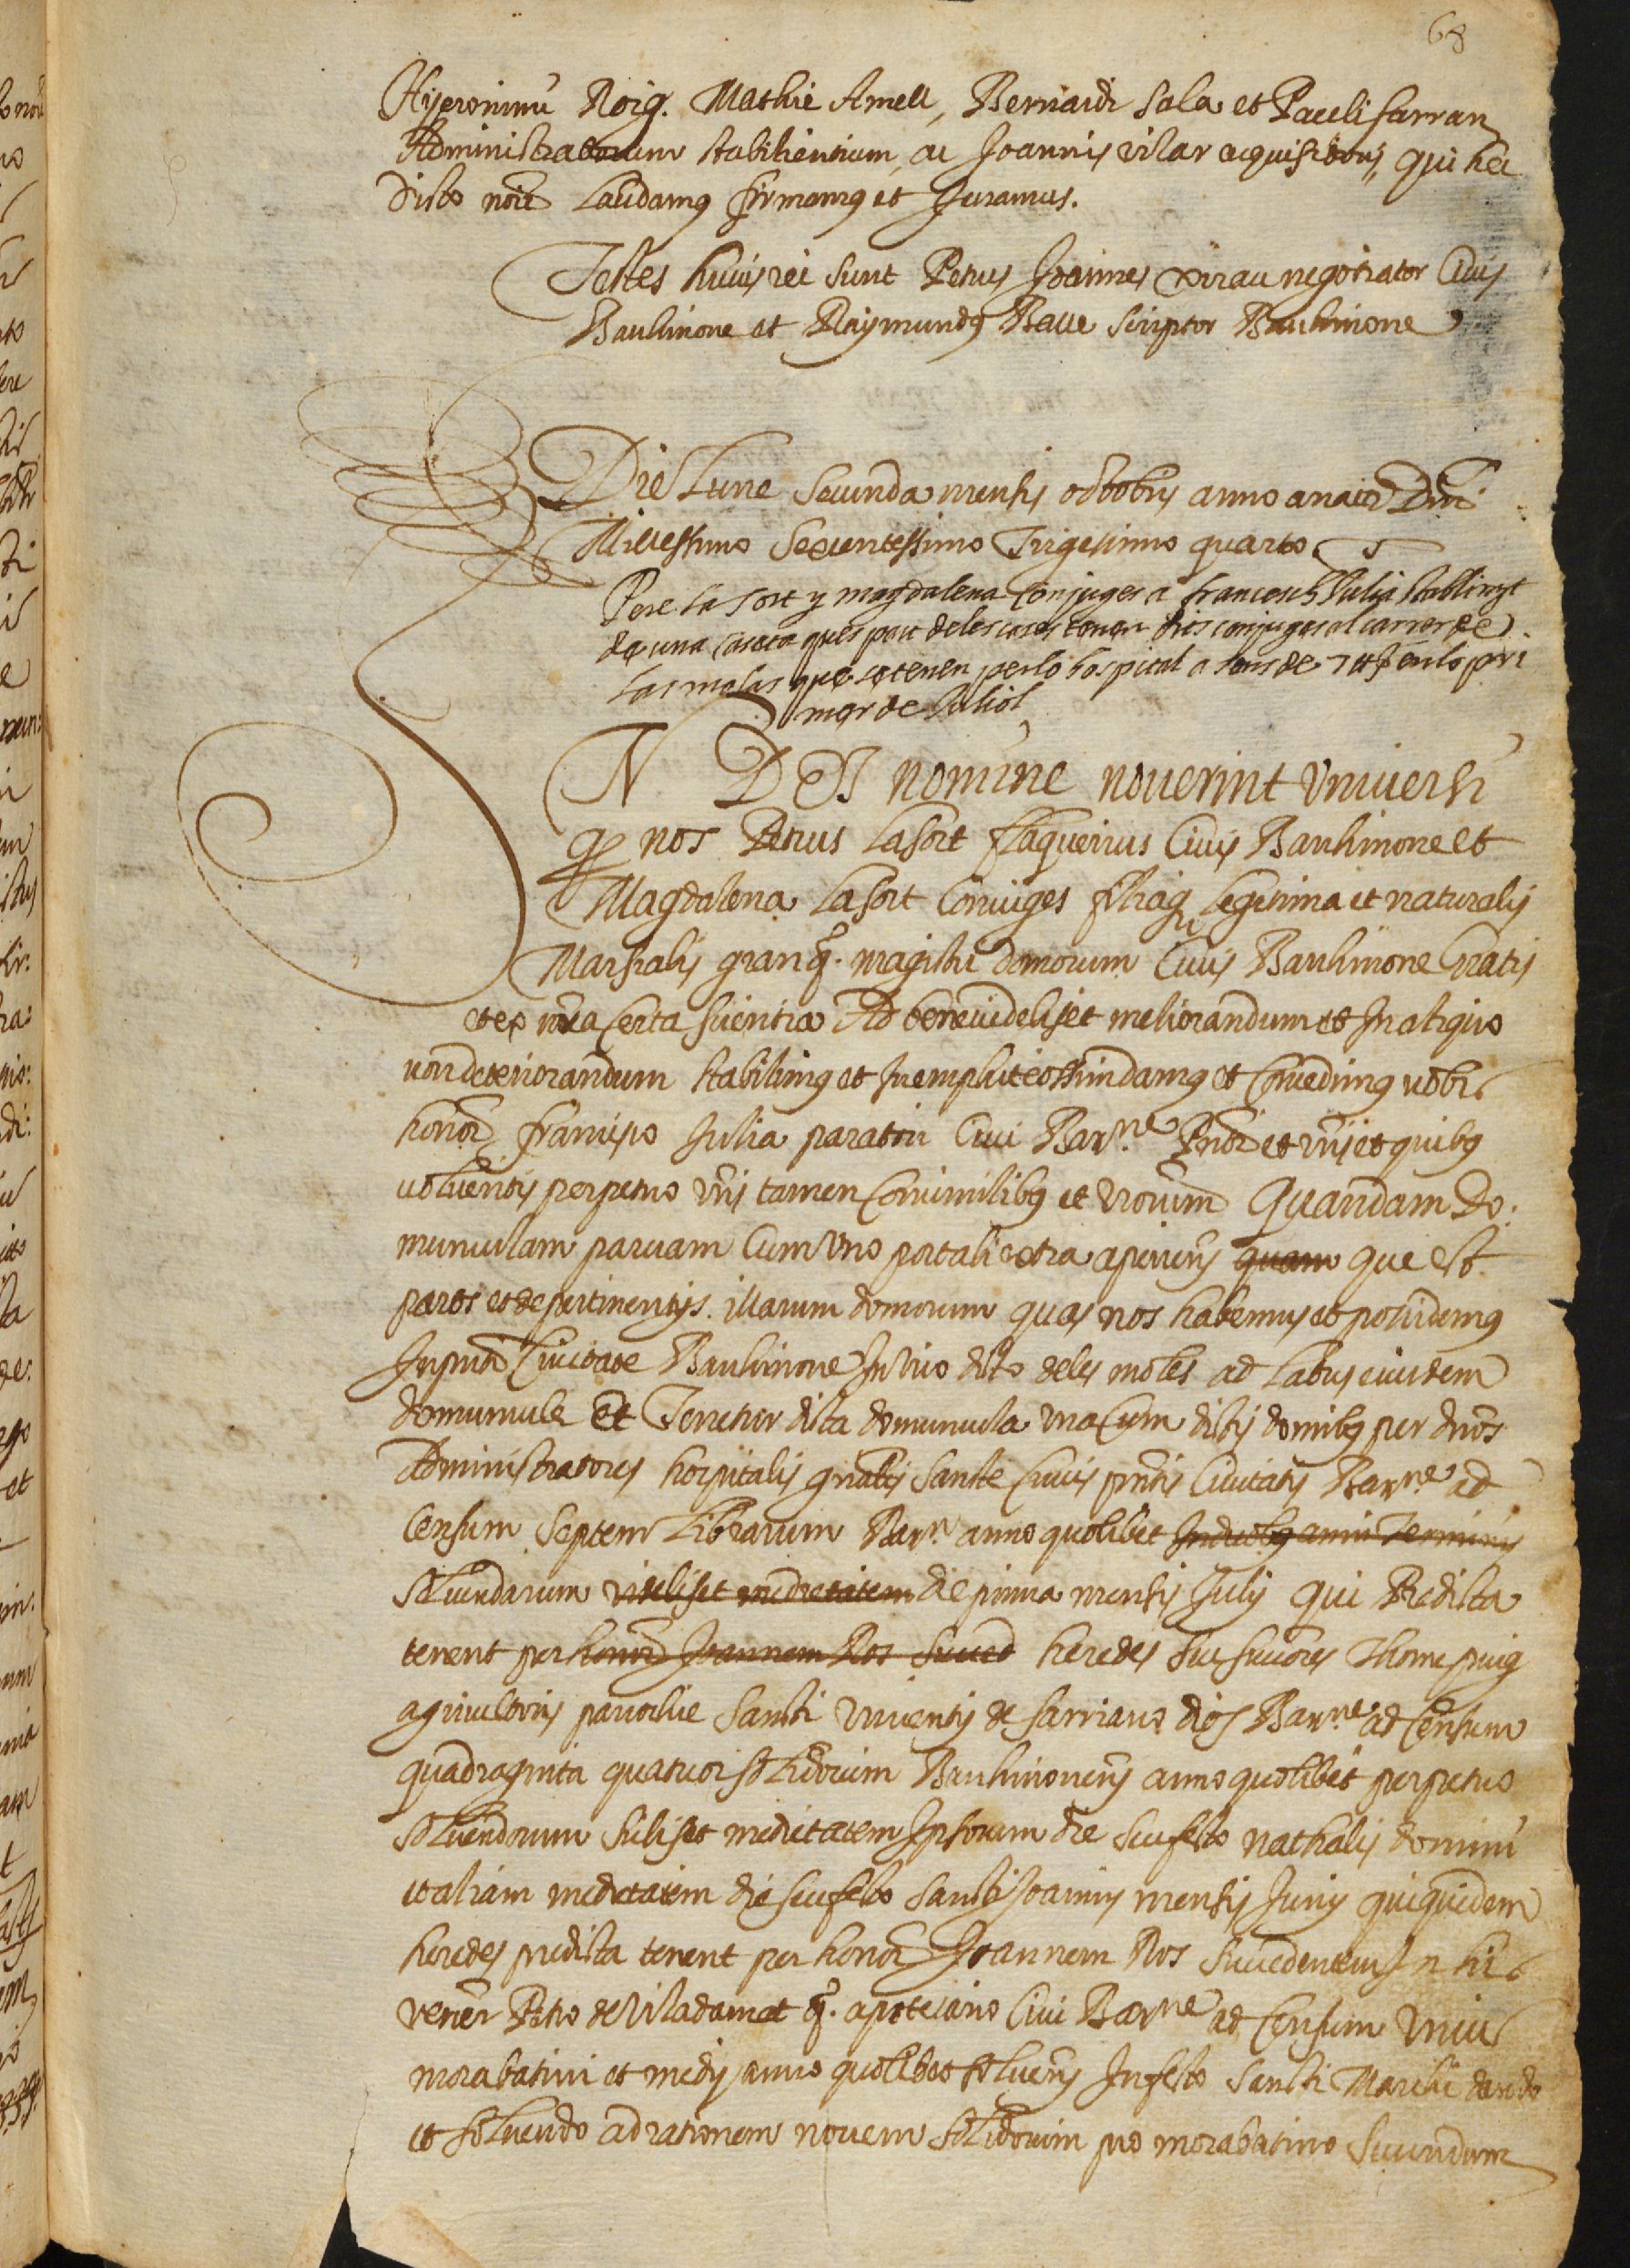 68
Hyeronimi Roig. Mathie Amell, Bernardi Sala et Pauli farran
Administratorum stabilientium, ac Joannis vilar acquisitoris, qui hec
dicto noīe Laudamus firmamus et Juramus.
Testes huius rei sunt Petrus Joannes xirau negotiator Civis
Barchinone et Raymundus Batle scriptor Barchinone
Die Lune secunda mensis octobris anno a natte Dni
Millessimo sexcentessimo Trigesimo quarto
Pere La sort y magdalena conjuges a francesch Julia stabliment
de una caseta ques part de les cases tenen dits conjuges al carrer de
Las molas que se tenen per lo hospital a sens de 7 ₶ en lo pri
mer de Juliol
IN DEI nomine noverint universi
q nos Petrus Lasort flaquerius Civis Barchinone et
Magdalena Lasort coniuges filiaq Legitima et naturalis
Marsialis gran q. magistri domorum Civis Barchinone Gratis
et ex nra certa scientia Ad bene videlicet meliorandum et In aliquo
non deteriorandum stabilimus et In emphiteosim damus et concedimus vobis
honor francisco Julia paratori Civi Barne. Pnti et vris et quibus
volueritis perpetuo vris tamen consimilibus et vrorum Quandam do.
munculam parvam Cum uno portali extra aperiens quam que est
pars et de pertinentijs illarum domorum quas nos habemus et possidemus
In pnti Civitate Barchinone In vico dicto deles moles ad Latus eiusdem
domuncule Et Tenetur dicta domuncula una cum dictis domibus per dnos
Administratores hospitalis gnalis Sancte Crucis pntis Civitatis Barne ad
Censum septem Librarum Barn. anno quolibet In duobus anni Terminis
solvendarum videliset medietatem die prima mensis Julij qui Predicta
tenent per honor Joannem Ros succed heredes sive succores Thome puig
agricultoris parochie Sancti Vincentij de sarriano dios Barne ad Censum
quadraginta quatuor solidorum Barchinonens anno quolibet perpetuo
solvendorum siliset medietatem Ipsorum die seu festo nathalis domini
et aliam medietatem die seu festo Sancti Joannis mensis Junij qui quidem
heredes predicta tenent per honor Joannem Ros succedentem In his
vener Petro de Viladamat q. apotecario Civi Barne ad Censum unius
morabatini et medij anno quolibet solvens In festo Sancti Marchi dando
et solvendo ad rationem novem solidorum pro morabatino secundum